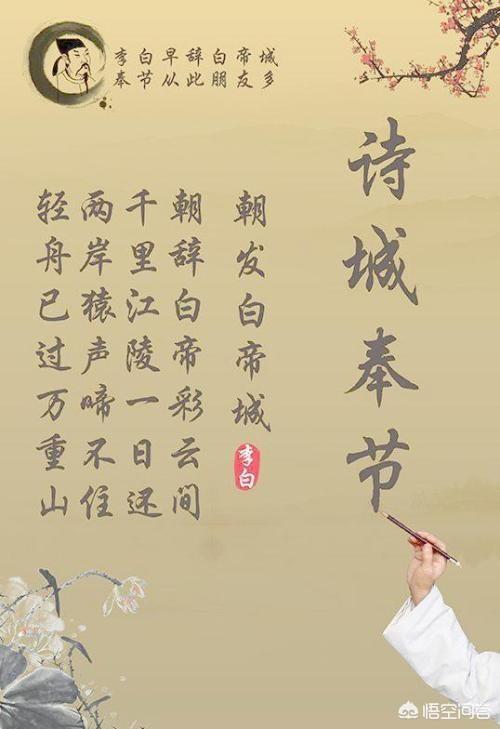 李白早辞白帝城
奉节从此朋友多
诗城奉节
朝发白帝城
李白
朝辞白帝彩云间
千里江陵一日还
两岸猿声啼不住
轻舟已过万重山
悟空问答